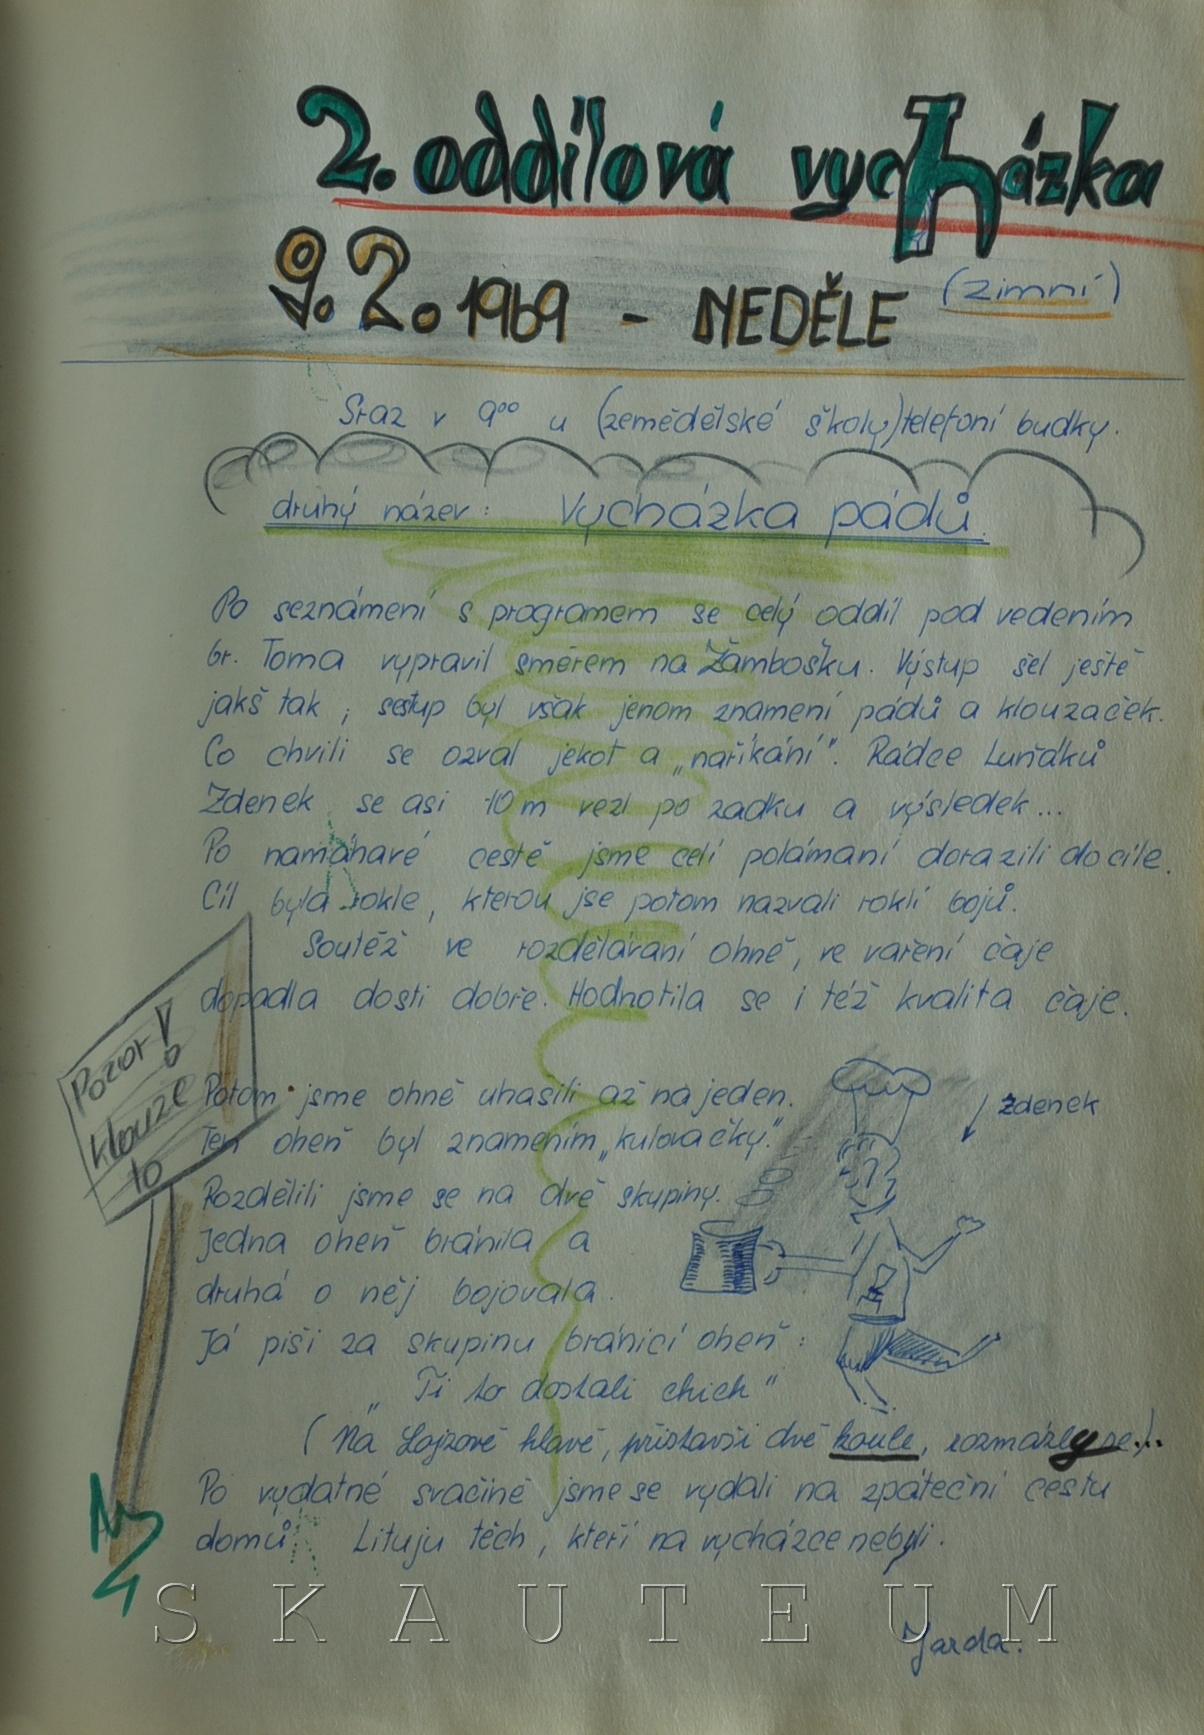 2. oddílová vycházka
9. 2. 1969 - NEDĚLE (zimní)
Sraz v 9⁰⁰ u (zemědělské školy) telefoní budky.
druhý název: Vycházka pádů.
Po seznámení s programem se celý oddíl pod vedením
br. Toma vypravil směrem na Žambošku. Výstup šel ještě
jakš tak, sestup byl však jenom znamení pádů a klouzaček.
Co chvíli se ozval jekot a „naříkání". Rádce Luňáků
Zdenek se asi 10 m vezl po zadku a výsledek...
Po namáhavé cestě jsme celí polámaní dorazili do cíle.
Cíl byla rokle, kterou jse potom nazvali roklí bojů.
Soutěž ve rozdělávaní ohně, ve vaření čaje
dopadla dosti dobře. Hodnotila se i též kvalita čaje.
Pozor!
klouže
to
Potom jsme ohně uhasili až na jeden.
Zdenek
Ten oheň byl znamením „kulovačky."
Rozdělili jsme se na dvě skupiny.
Jedna oheň bránila a
druhá o něj bojovala.
Já píši za skupinu bránicí oheň:
„Ti to dostali chich"
(Na Lojzově hlavě, přistavši dvě koule, rozmázly se)...
Po vydatné svačině jsme se vydali na zpáteční cestu
domů. Lituju těch, kteří na vycházce nebyli.
SKAUTEUM
Jarda.